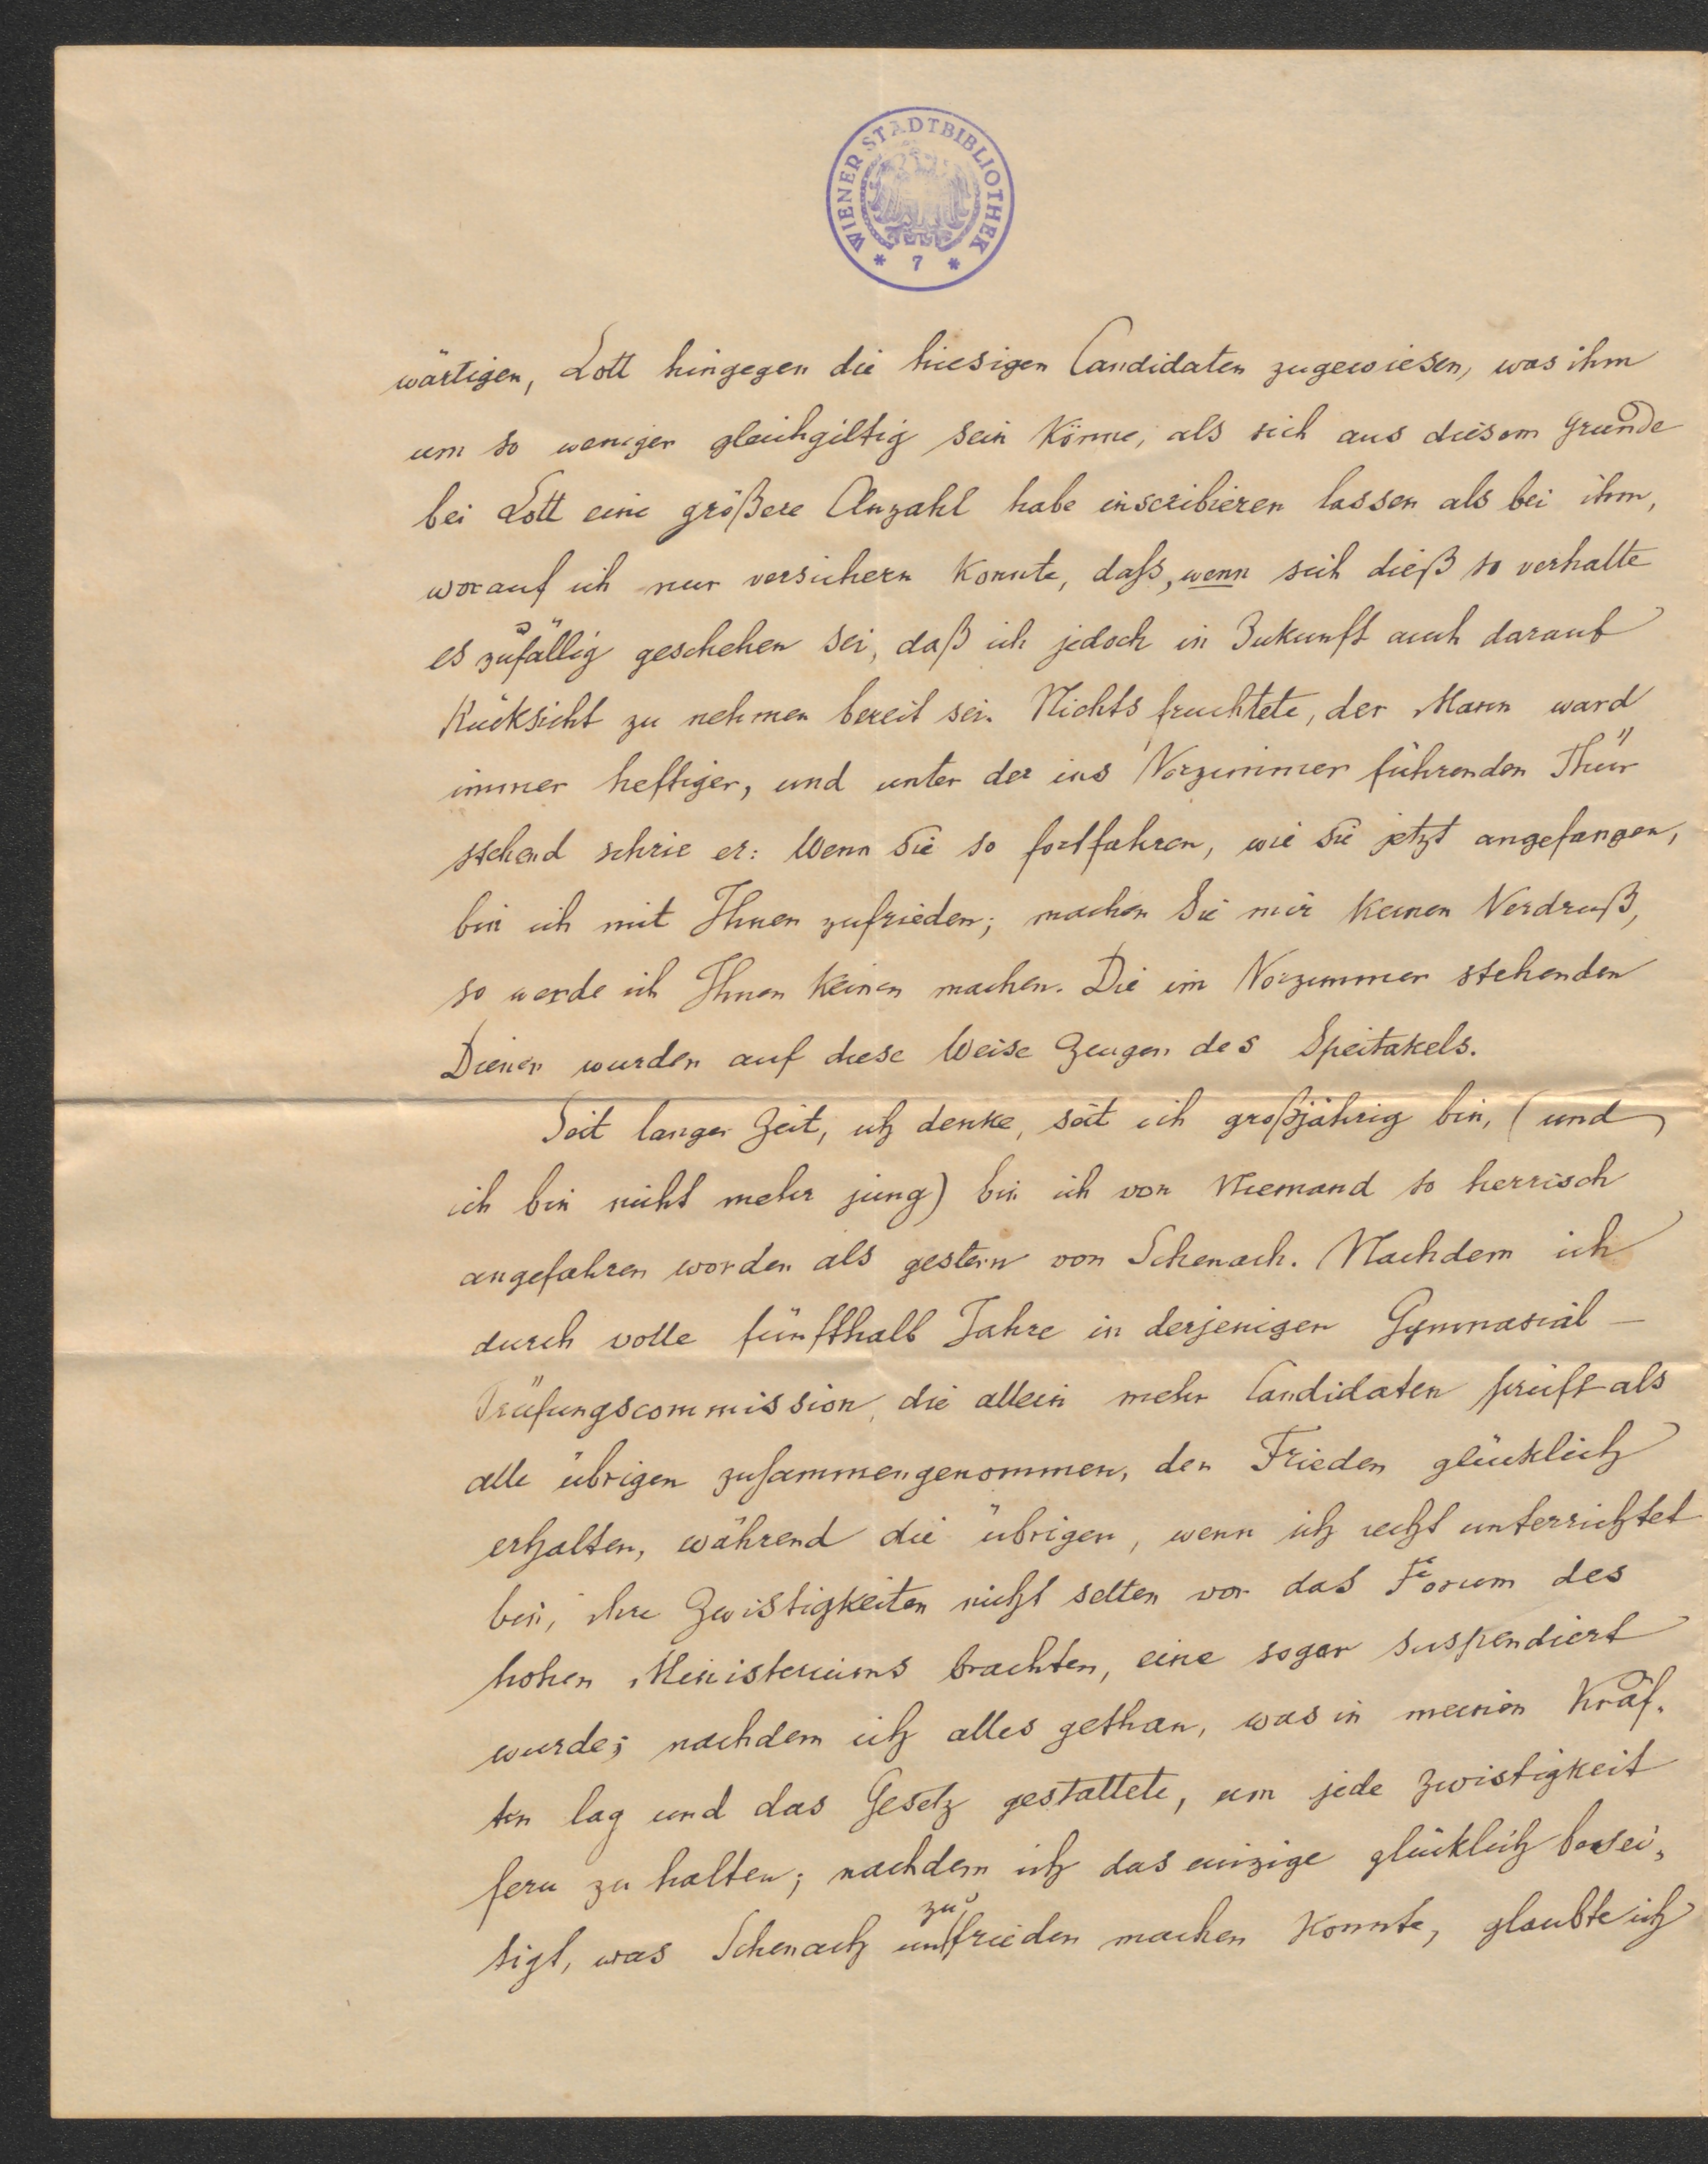 WIENER STADTBIBLIOTHEK
* 7 *
wärtigen, Lott hingegen die hiesigen Candidaten zugewiesen, was ihm
um so weniger gleichgiltig sein könne, als sich aus diesem Grunde
bei Lott eine größere Anzahl habe inscribieren lassen als bei ihm,
worauf ich nur versichern konnte, daß, wenn sich dieß so verhalte
es zufällig geschehen sei, daß ich jedoch in Zukunft auch darauf
Rücksicht zu nehmen bereit sei. Nichts fruchtete, der Mann ward
immer heftiger, und unter der ins Vorzimmer führenden Thür
stehend schrie er: Wenn Sie so fortfahren, wie Sie jetzt angefangen,
bin ich mit Ihnen zufrieden; machen Sie mir keinen Verdruß,
so werde ich Ihnen keinen machen. Die im Vorzimmer stehenden
Diener wurden auf diese Weise Zeugen des Speitakels.
Seit langer Zeit, ich denke, seit ich großjährig bin, (und
ich bin nicht mehr jung) bin ich von Niemand so herrisch
angefahren worden als gestern von Schenach. Nachdem ich
durch volle fünfthalb Jahre in derjenigen Gymnasial-
Prüfungscommission, die allein mehr Candidaten prüft als
alle übrigen zusammengenommen, den Frieden glücklich
erhalten, während die übrigen, wenn ich recht unterrichtet
bin, ihre Zwistigkeiten nicht selten vor das Forum des
hohen Ministeriums brachten, eine sogar suspendiert
wurde; nachdem ich alles gethan, was in meinen Kräf-
ten lag und das Gesetz gestattete, um jede Zwistigkeit
fern zu halten; nachdem ich das einzige glücklich besei-
tigt, was Schenach unzufrieden machen konnte, glaubte ich